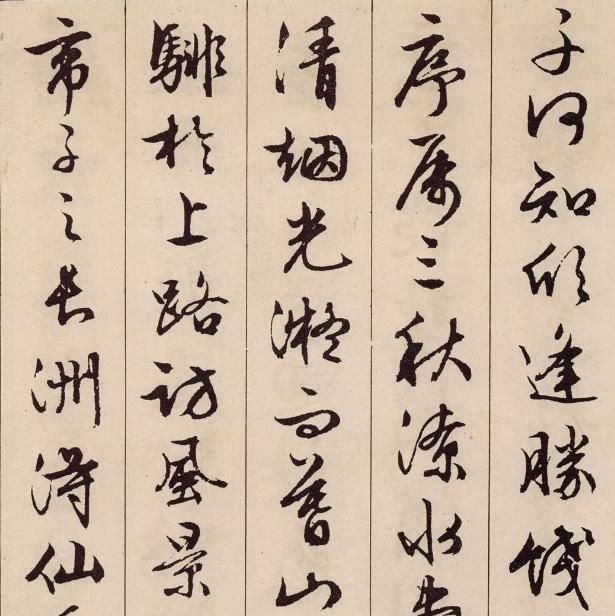 子何知躬逢勝餞
序属三秋潦水
清烟光凝而暮山
騑於上路訪風景
帝子之長洲得仙